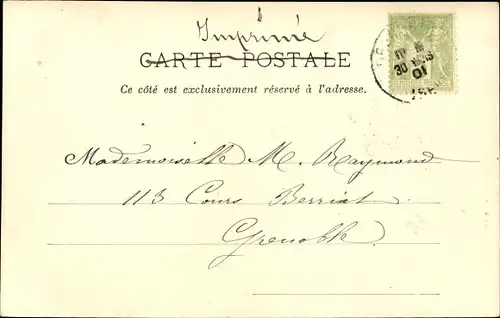 Imprimé
CARTE POSTALE
Ce côté est exclusivement réservé à l'adresse.
30 MARS
01
Mademoiselle M. Raymond
113 Cours Berriat
Grenoble